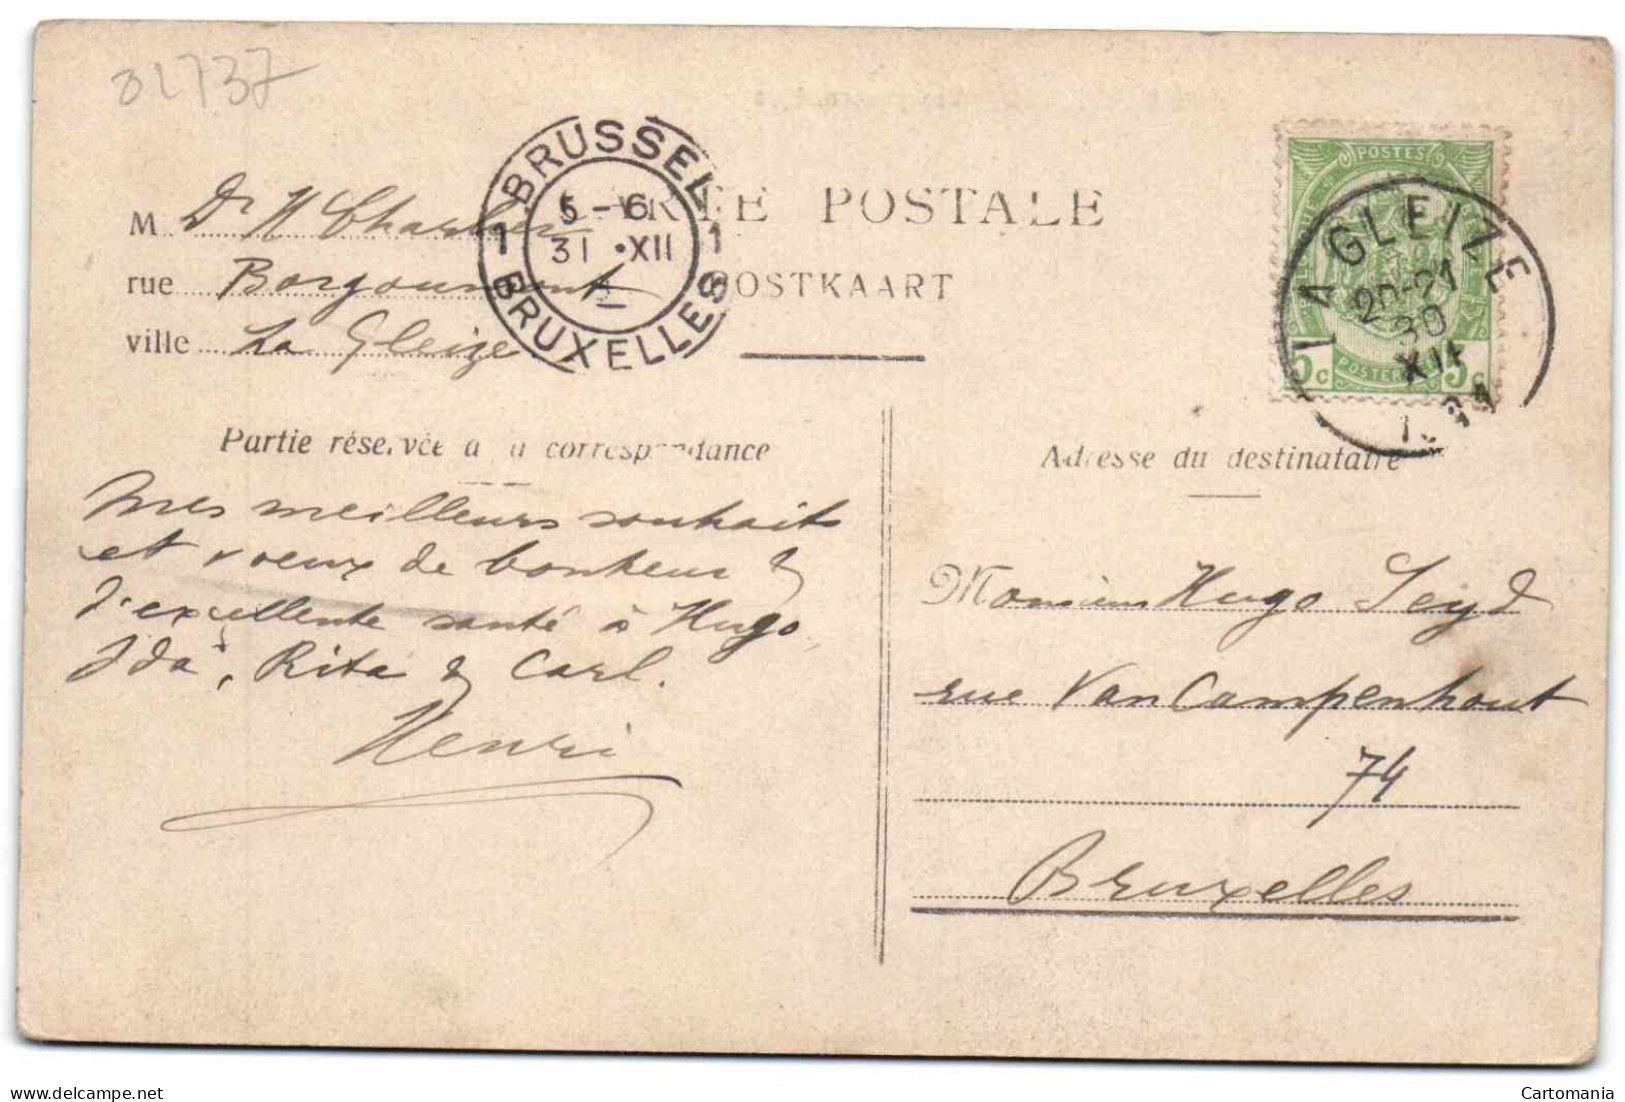 01737
CARTE POSTALE
POSTKAART
BRUSSEL
1 1
5-6
31 •XII
BRUXELLES
M Dr H Charlier
rue Borgoumont
ville La Gleize
POSTES
LA GLEIZE
20-21
30
XII
5c POSTERIJEN 5c
Partie réservée à la correspondance
Mes meilleurs souhaits
et voeux de bonheur &
d'excellente santé à Hugo,
Ida, Rita & Carl.
Henri
Adresse du destinataire
Monsieur Hugo Seyd
rue Van Campenhout
74
Bruxelles
Cartomania